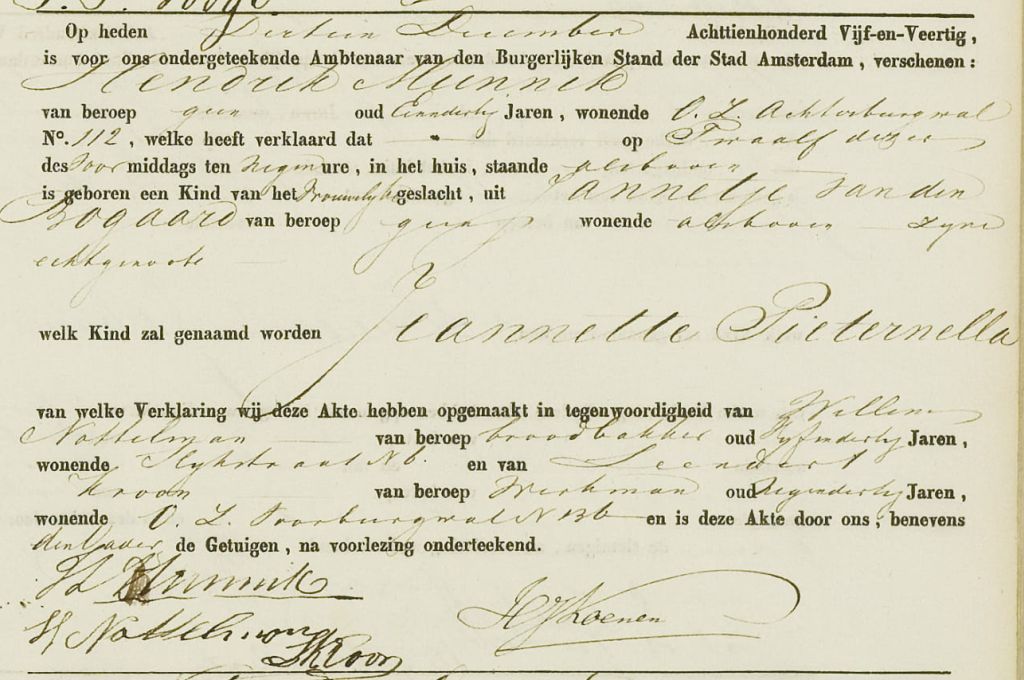 Op heden Dertien December Achttienhonderd Vijf-en-Veertig,
is voor ons ondergeteekende Ambtenaar van den Burgerlijken Stand der Stad Amsterdam, verschenen:
Hendrik Munnik
van beroep geen oud Eenendertig Jaren, wonende O. Z. Achterburgwal
No. 112, welke heeft verklaard dat op Twaalf dezer
des Voormiddags ten Negen ure, in het huis, staande alsboven
is geboren een Kind van het Vrouwelijke geslacht, uit Jannetje van den
Bogaard van beroep geen wonende alsboven zyne
echtgenoote
welk Kind zal genaamd worden Jeannette Pieternella
van welke Verklaring wij deze Akte hebben opgemaakt in tegenwoordigheid van Willem
Nottelman van beroep broodbakker oud Vyfendertig Jaren,
wonende Slykstraat N 6. en van Leendert
Kroon van beroep Werkman oud Negendertig Jaren,
wonende O. Z. Voorburgwal N 136 en is deze Akte door ons, benevens
den Vader de Getuigen, na voorlezing onderteekend.
H Munnik
HJKoenen
W Nottelman
LKroon